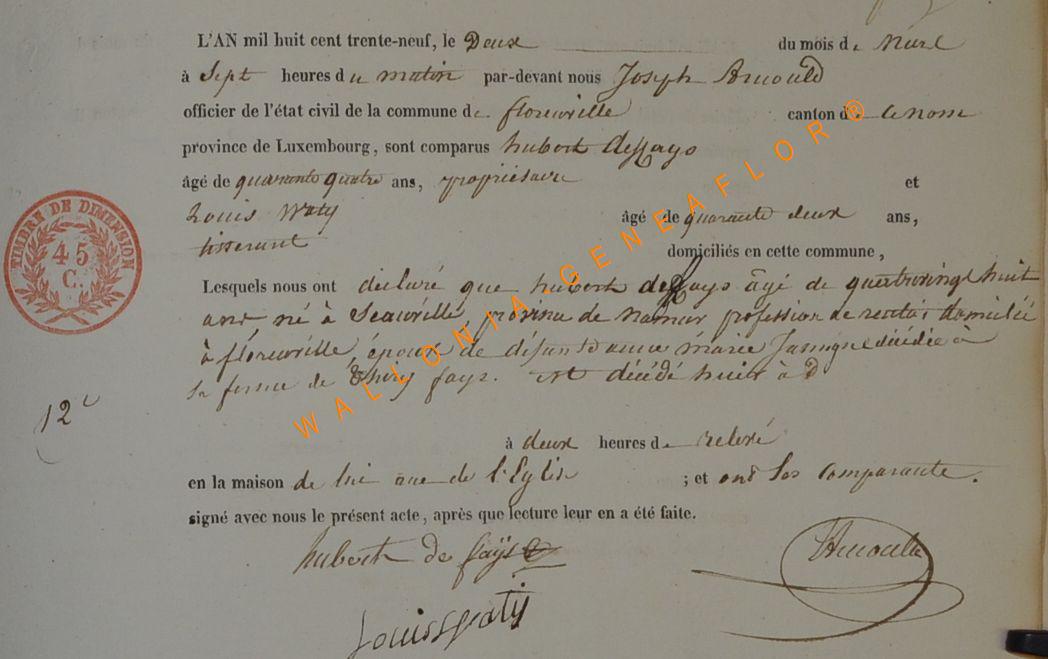 L'AN mil huit cent trente-neuf, le Deux du mois de Mars
à Sept heures du matin par-devant nous Joseph Arnould
officier de l'état civil de la commune de florenville canton de ce nom
province de Luxembourg, sont comparus hubert deffays
âgé de quarante quatre ans, propriétaire et
Louis Waty âgé de quarante deux ans,
tisserant domiciliés en cette commune,
Lesquels nous ont déclaré que hubert deffays âgé de quatrevingt huit
ans, né à province de namur profession de rentier domicilié
à florenville, époux de défunte anne marie décédée à
la ferme de fays. est décédé hier à
12e
à deux heures de relevé
en la maison de lui rue de l'Eglise ; et ont les comparants.
signé avec nous le présent acte, après que lecture leur en a été faite.
hubert de fays
Arnould
Louis Waty
TIMBRE DE DIMENSION
45
C.
WALLONIA.GENEAFLOR®